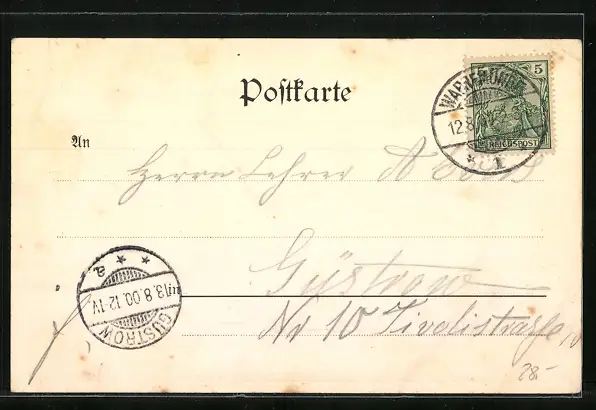 Postkarte
5
REICHSPOST
WARNEMÜNDE
12.8
An
Herrn Lehrer A
Güstrow
Nr 10 Tivolistraße
13.8.00.12-1V
GÜSTROW
a
28.-